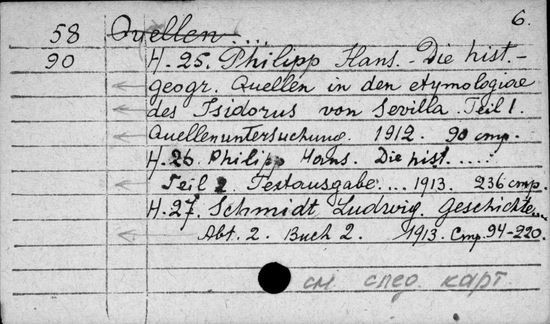 6.
58 Quellen...
90 H. 25. Philipp Hans. - Die hist. -
geogr. Quellen in den etymologiae
des Isidorus von Sevilla. Teil 1.
Quellenuntersuchung. 1912. 90 стр.
H. 26. Philipp Hans. Die hist.....
Teil 2. Textausgabe.... 1913. 236 стр.
H. 27. Schmidt Ludwig. Geschichte...
Abt. 2. Buch 2. 1913. Стр. 94-220.
см. след. карт